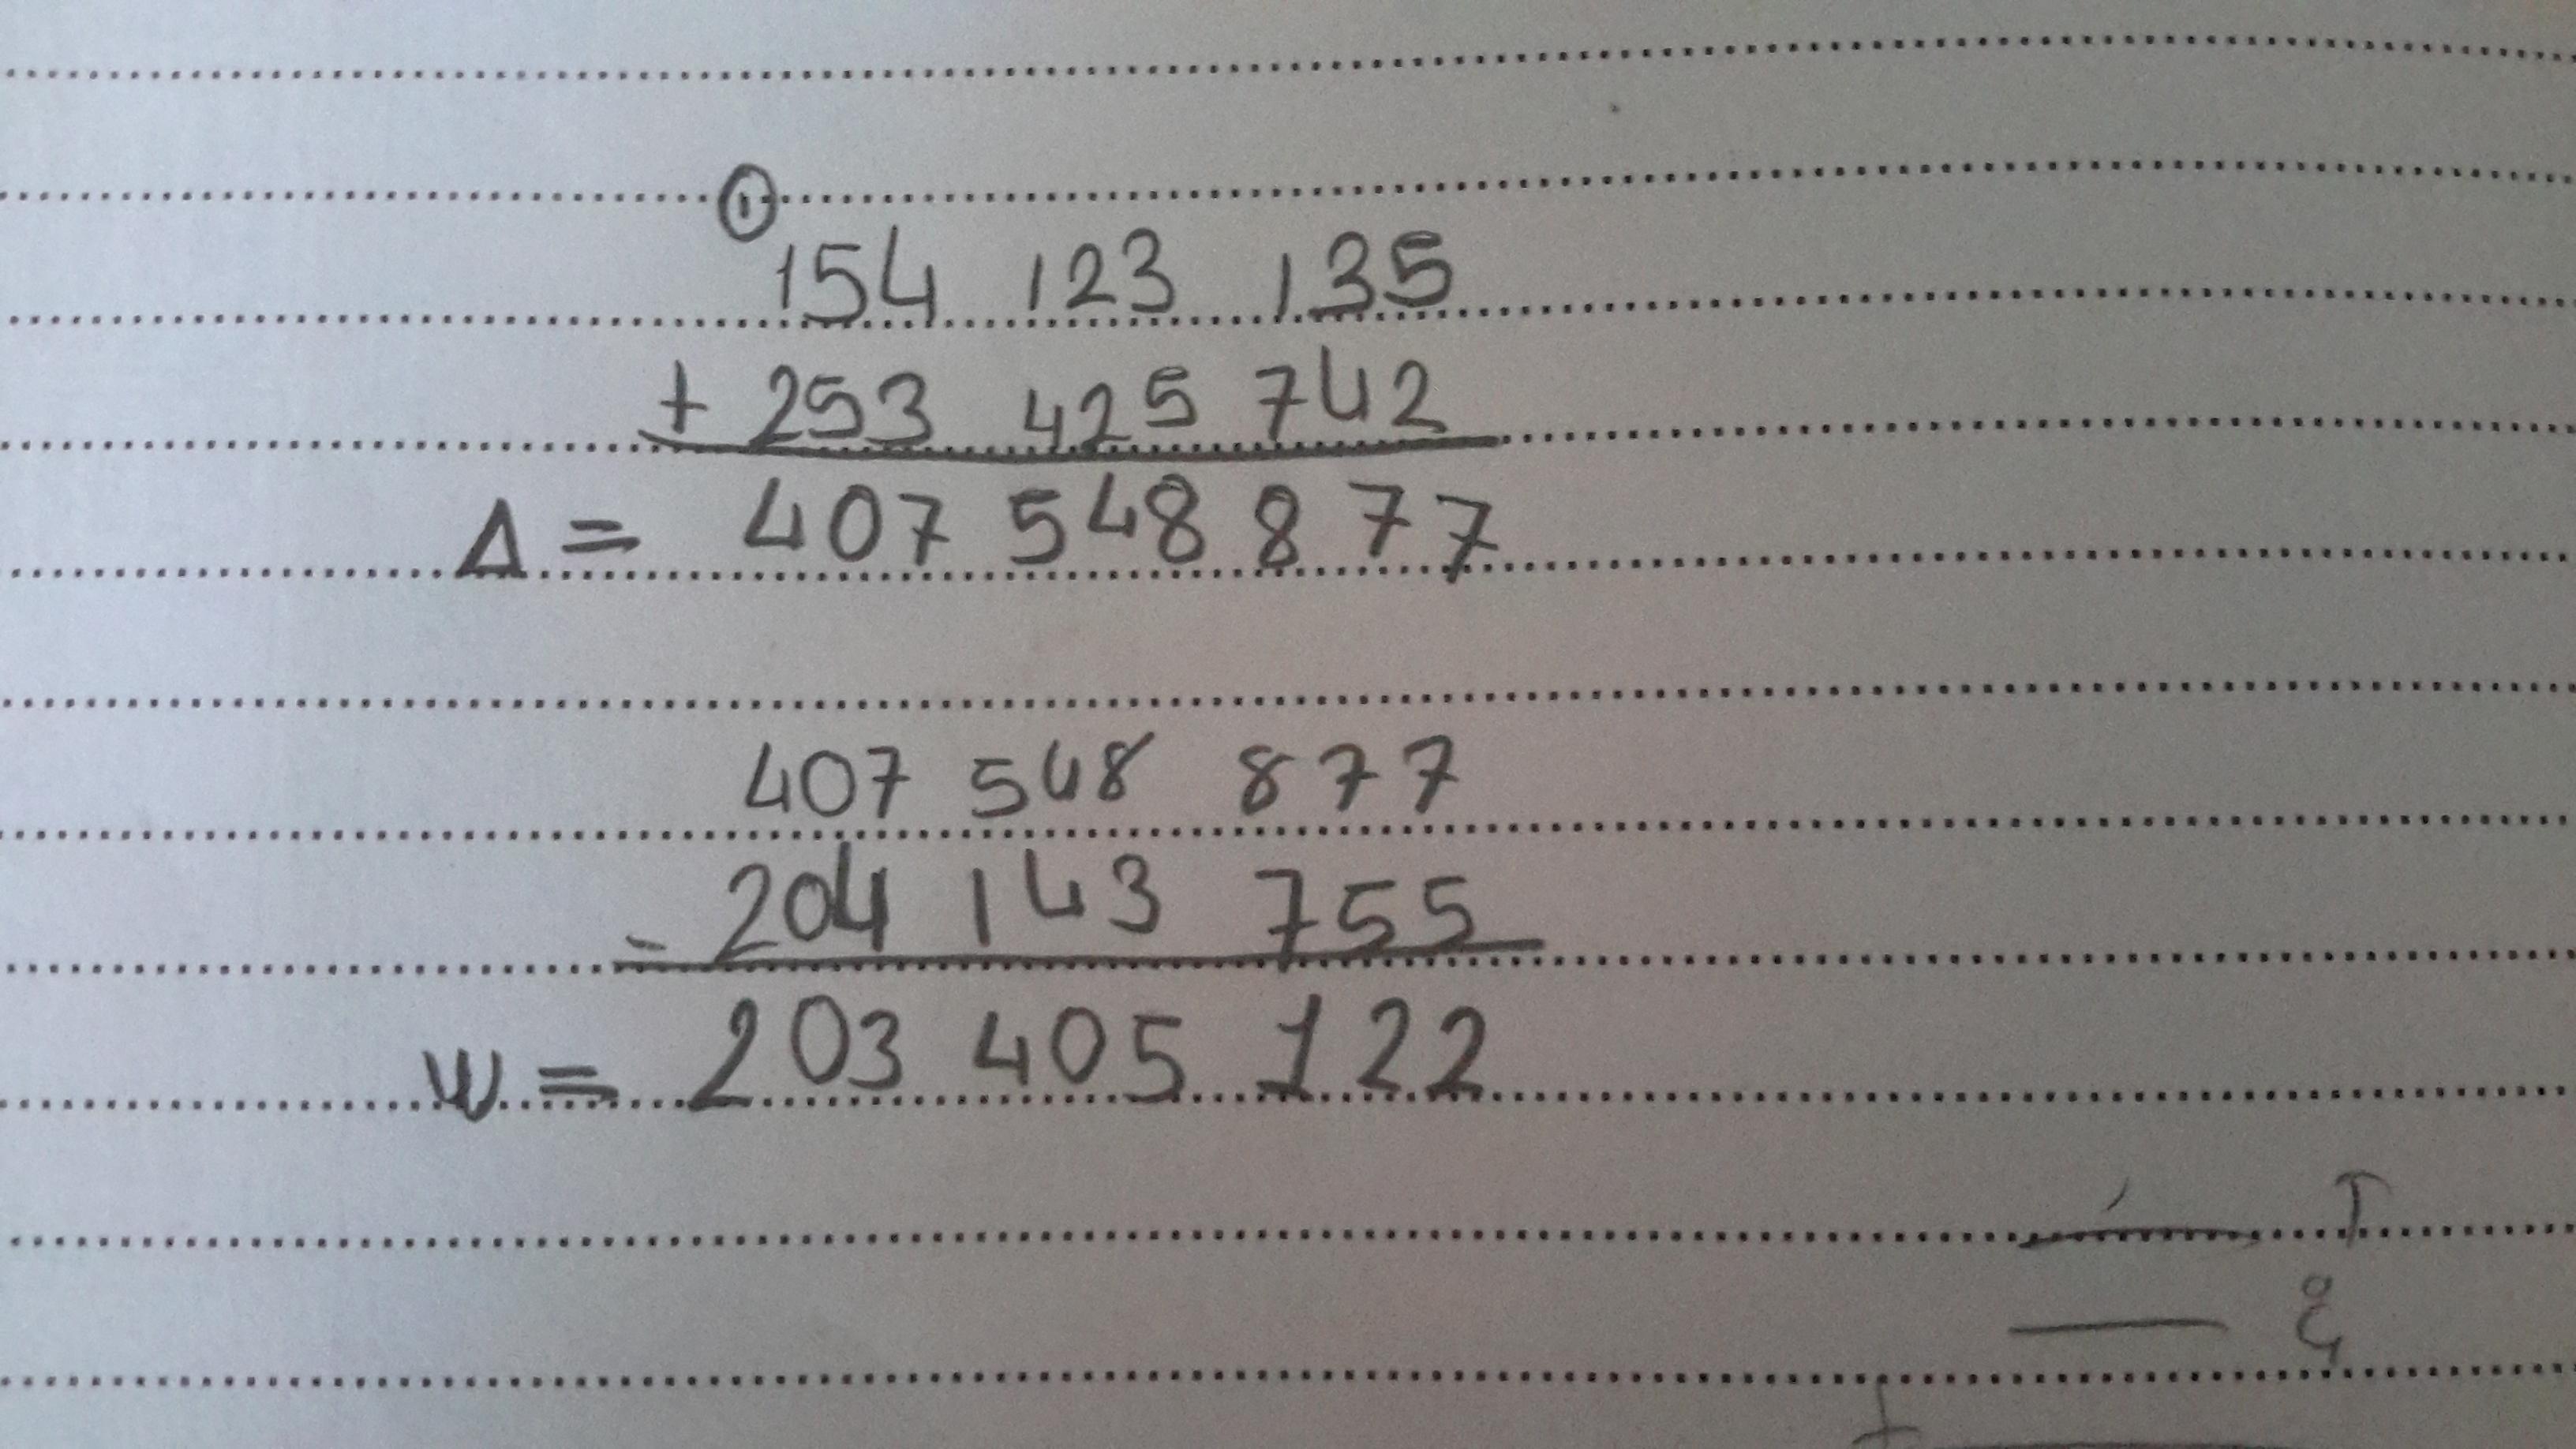 ①
154 123 135
+ 253 425 742
Δ = 407 548 877
407 548 877
- 204 143 755
W = 203 405 122